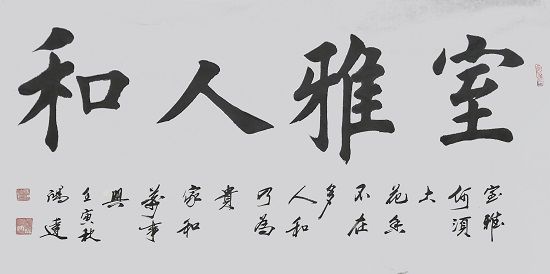 室雅人和
室雅
何須
大
花香
不在
多
人和
乃為
貴
家和
萬事
興
壬寅秋
鴻達